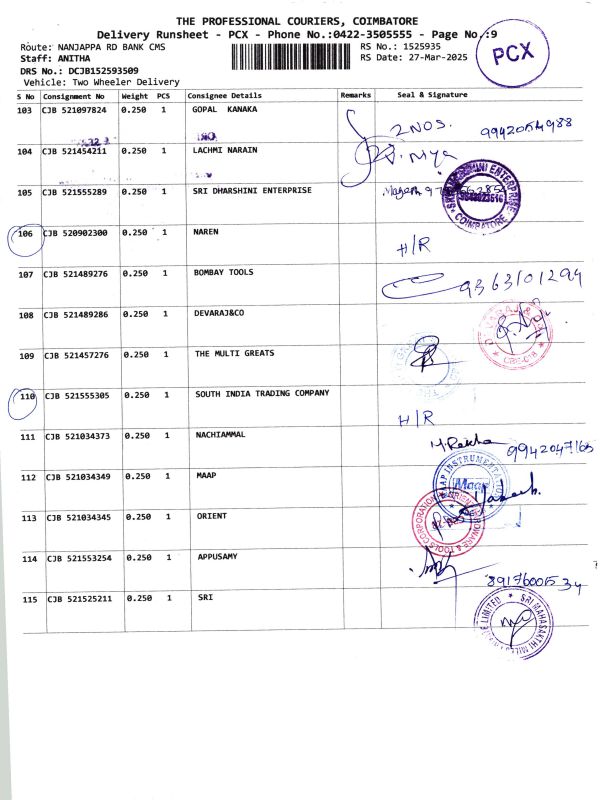 THE PROFESSIONAL COURIERS, COIMBATORE
Delivery Runsheet - PCX - Phone No.:0422-3505555 - Page No.:9
Route: NANJAPPA RD BANK CMS
RS No.: 1525935
PCX
Staff: ANITHA
RS Date: 27-Mar-2025
DRS No.: DCJB152593509
Vehicle: Two Wheeler Delivery
S No Consignment No Weight PCS Consignee Details Remarks Seal & Signature
103 CJB 521097824 0.250 1 GOPAL KANAKA
2 NOS. 9942054988
104 CJB 521454211 0.250 1 LACHMI NARAIN
105 CJB 521555289 0.250 1 SRI DHARSHINI ENTERPRISE
COIMBATORE
106 CJB 520902300 0.250 1 NAREN
H/R
107 CJB 521489276 0.250 1 BOMBAY TOOLS
9363101294
108 CJB 521489286 0.250 1 DEVARAJ&CO
109 CJB 521457276 0.250 1 THE MULTI GREATS
110 CJB 521555305 0.250 1 SOUTH INDIA TRADING COMPANY
H/R
111 CJB 521034373 0.250 1 NACHIAMMAL
M.Rekha 9942047165
112 CJB 521034349 0.250 1 MAAP
Maap
113 CJB 521034345 0.250 1 ORIENT
114 CJB 521553254 0.250 1 APPUSAMY
8917600534
115 CJB 521525211 0.250 1 SRI